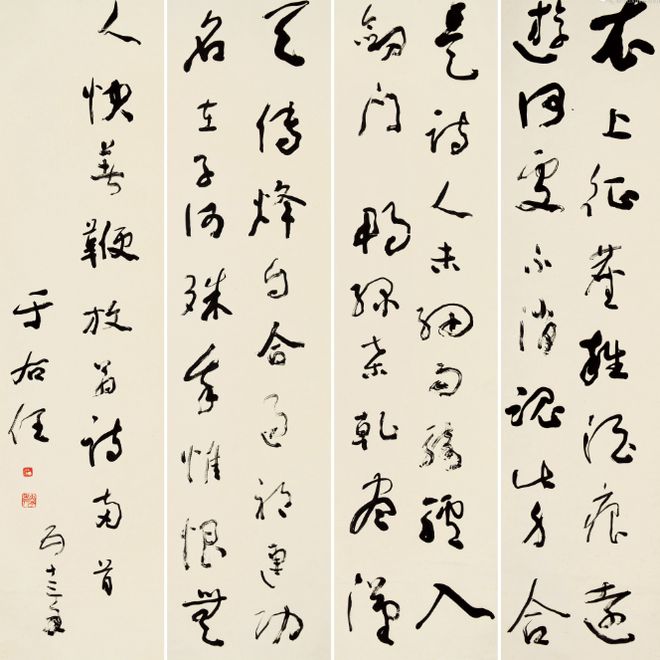 衣上征塵雜酒痕遠
遊何處不消魂此身合
是詩人未細雨騎驢入
劍門 鴨綠桑乾盡漢
天傳烽自合過祁連功
名在子何殊我惟恨無
人快著鞭放翁詩兩首
于右任
五十三年